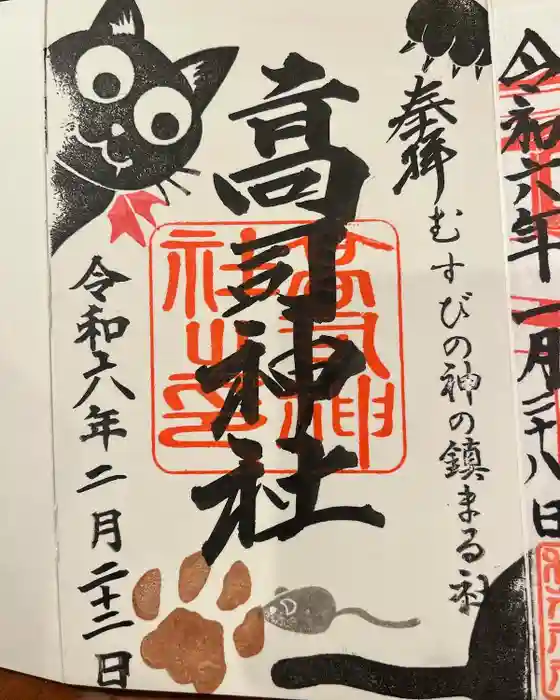 令和六年一月二十八日
奉拝
むすびの神の鎮まる社
高司神社
高司神
社之印
令和六年二月二十二日